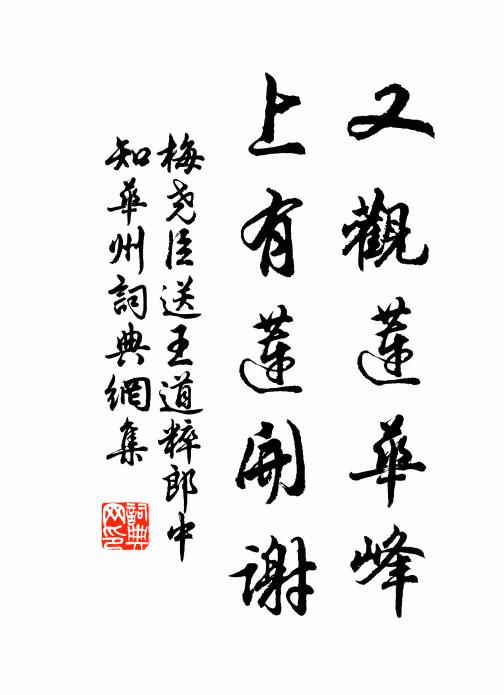 又觀蓮華峰
上有蓮開謝
梅堯臣送王道粹郎中
知華州詞典網集
詞典網印